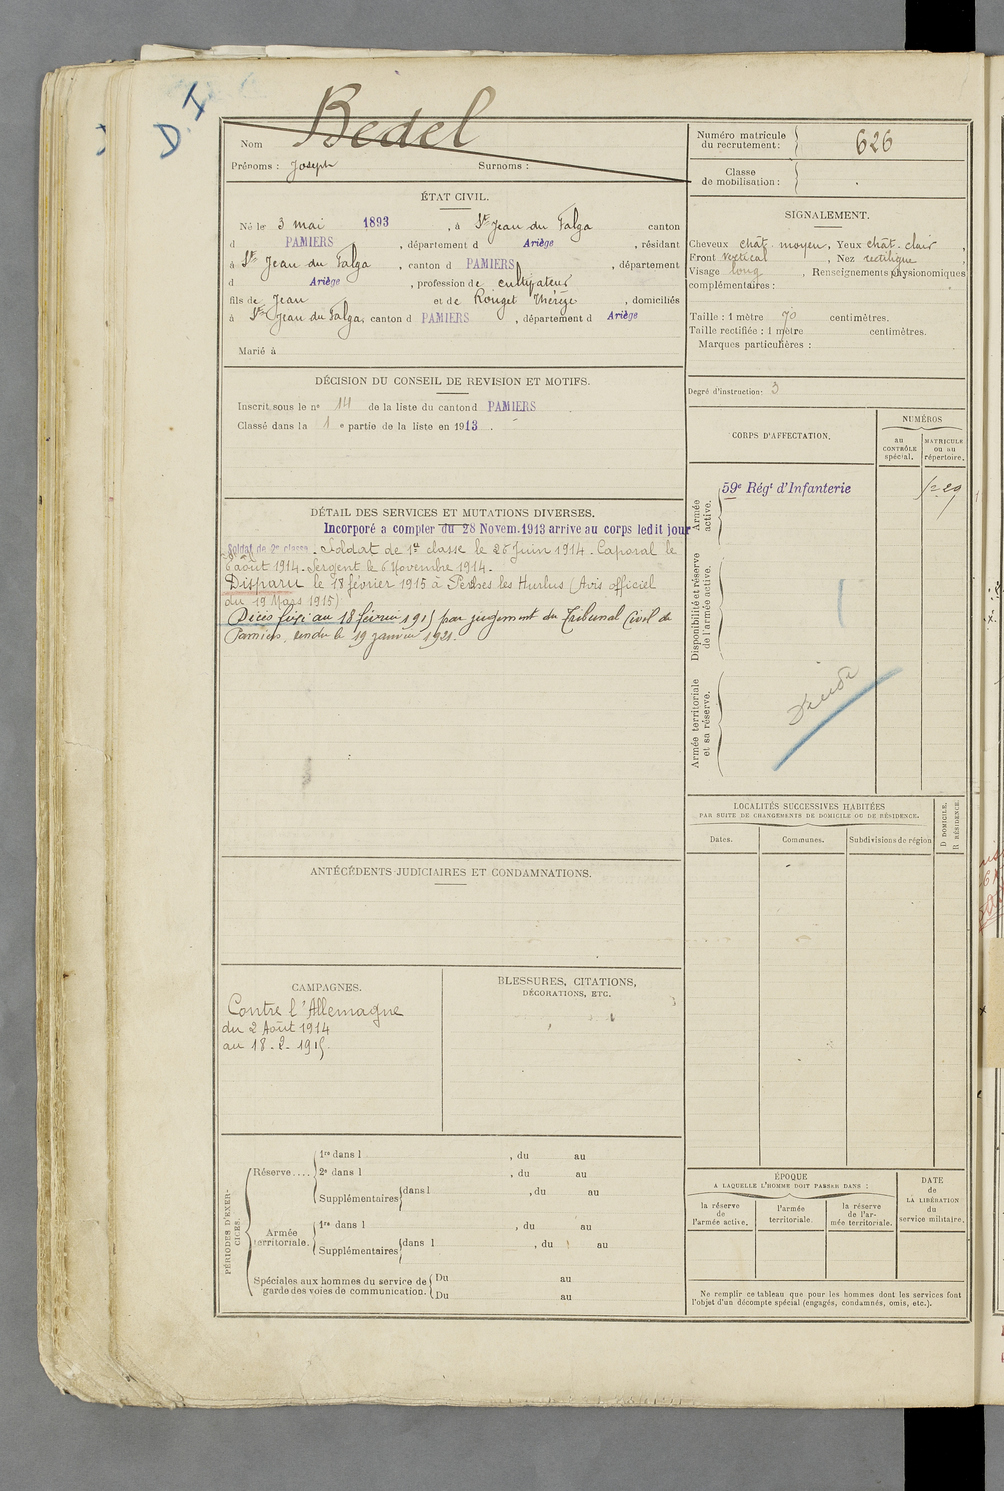 D. I
Nom Bedel
Prénoms : Joseph Surnoms :
Numéro matricule du recrutement : 626
Classe de mobilisation :
ÉTAT CIVIL.
Né le 3 mai 1893, à St Jean du Falga canton
d PAMIERS, département d Ariège, résidant
à St Jean du Falga, canton d PAMIERS, département
d Ariège, profession de cultivateur
fils de Jean et de Rouget Thérèze, domiciliés
à St Jean du Falga, canton d PAMIERS, département d Ariège
Marié à
DÉCISION DU CONSEIL DE REVISION ET MOTIFS.
Inscrit sous le no 14 de la liste du canton d PAMIERS
Classé dans la 1 e partie de la liste en 1913.
DÉTAIL DES SERVICES ET MUTATIONS DIVERSES.
Incorporé a compter du 28 Novem. 1913 arrive au corps ledit jour
Soldat de 2e classe. Soldat de 1e classe le 25 Juin 1914. Caporal le
6 août 1914. Sergent le 6 Novembre 1914.
Disparu le 18 février 1915 à Perthes les Hurlus (Avis officiel
du 19 Mars 1915)
Décès fixé au 18 février 1915 par jugement du Tribunal Civil de
Pamiers, rendu le 19 janvier 1921.
ANTÉCÉDENTS JUDICIAIRES ET CONDAMNATIONS.
CAMPAGNES.
Contre l'Allemagne
du 2 Août 1914
au 18-2-1915.
BLESSURES, CITATIONS,
DÉCORATIONS, ETC.
PÉRIODES D'EXERCICES.
Réserve....
1re dans l , du au
2e dans l , du au
Supplémentaires dans l , du au
Armée territoriale.
1re dans l , du au
Supplémentaires dans l , du au
Spéciales aux hommes du service de garde des voies de communication.
Du au
Du au
SIGNALEMENT.
Cheveux chât. moyen, Yeux chât. clair,
Front vertical, Nez rectiligne,
Visage long, Renseignements physionomiques
complémentaires :
Taille : 1 mètre 70 centimètres.
Taille rectifiée : 1 mètre centimètres.
Marques particulières :
Degré d'instruction : 3
CORPS D'AFFECTATION.
NUMÉROS
au CONTRÔLE spécial.
MATRICULE ou au répertoire.
Armée active.
59e Régt d'Infanterie
Disponibilité et réserve de l'armée active.
Armée territoriale et sa réserve.
LOCALITÉS SUCCESSIVES HABITÉES
PAR SUITE DE CHANGEMENTS DE DOMICILE OU DE RÉSIDENCE.
Dates.
Communes.
Subdivisions de région
D DOMICILE.
R RÉSIDENCE.
ÉPOQUE
A LAQUELLE L'HOMME DOIT PASSER DANS :
la réserve de l'armée active.
l'armée territoriale.
la réserve de l'armée territoriale.
DATE de LA LIBÉRATION du service militaire.
Ne remplir ce tableau que pour les hommes dont les services font
l'objet d'un décompte spécial (engagés, condamnés, omis, etc.).